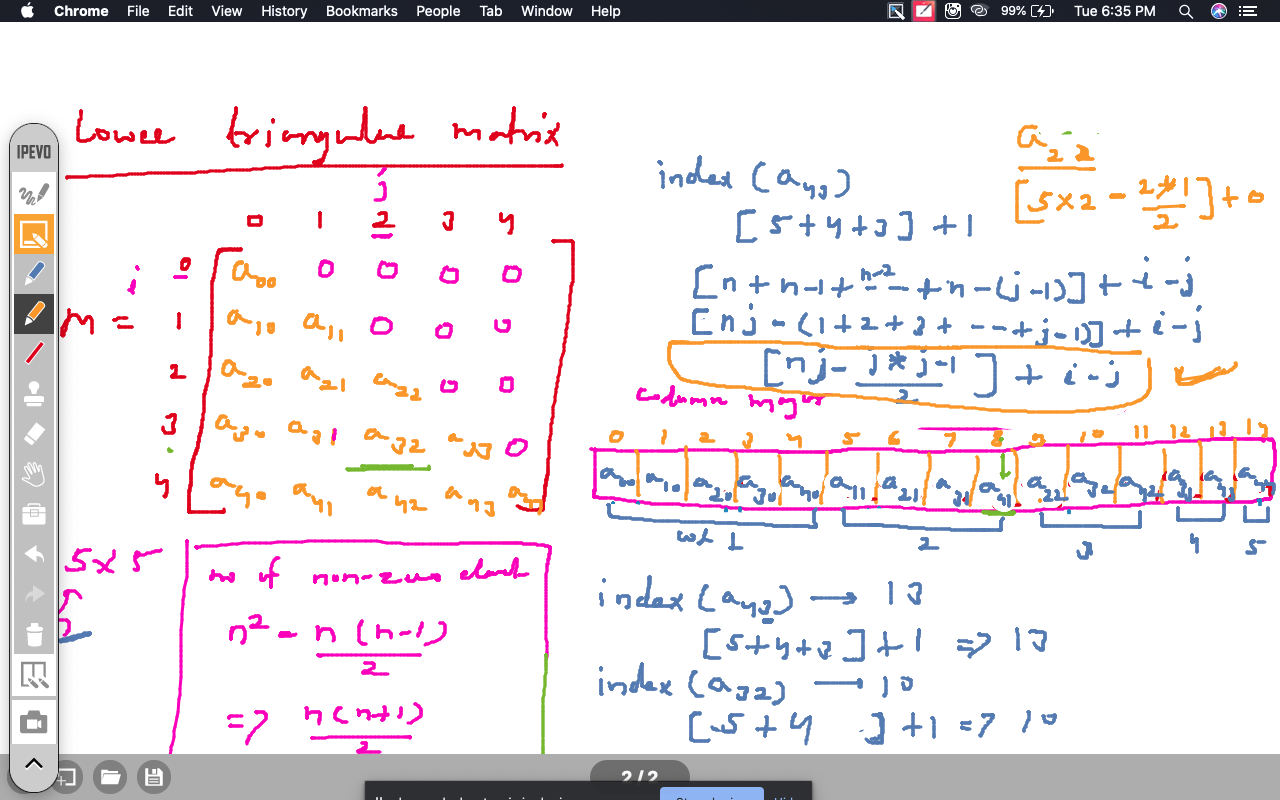 Chrome File Edit View History Bookmarks People Tab Window Help 99% Tue 6:35 PM
IPEVO
Lower triangular matrix
j
0 1 2 3 4
i 0 a00 0 0 0 0
M = 1 a10 a11 0 0 0
2 a20 a21 a22 0 0
3 a30 a31 a32 a33 0
4 a40 a41 a42 a43 a44
5x5
no of non-zero element
n² - n(n-1)/2
=> n(n+1)/2
index (a43)
[5+4+3] + 1
a22
[5x2 - 2*1/2] + 0
[n + n-1 + n-2 -- + n-(j-1)] + i-j
[nj - (1+2+3+ --+j-1)] + i-j
[nj - j*j-1/2] + i-j
column major
0 1 2 3 4 5 6 7 8 9 10 11 12 13 14
a00 a10 a20 a30 a40 a11 a21 a31 a41 a22 a32 a42 a33 a43 a44
col 1 2 3 4 5
index (a43) → 13
[5+4+3] + 1 => 13
index (a32) → 10
[5+4 ] + 1 => 10
2/2